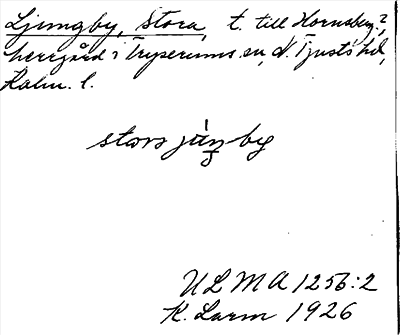 Ljungby, Stora, t. till Hornsberg,
herrgård i Tryserums sn, N. Tjusts hd,
Kalm. l.
stora
by
ULMA 1256:2
K. Larm 1926